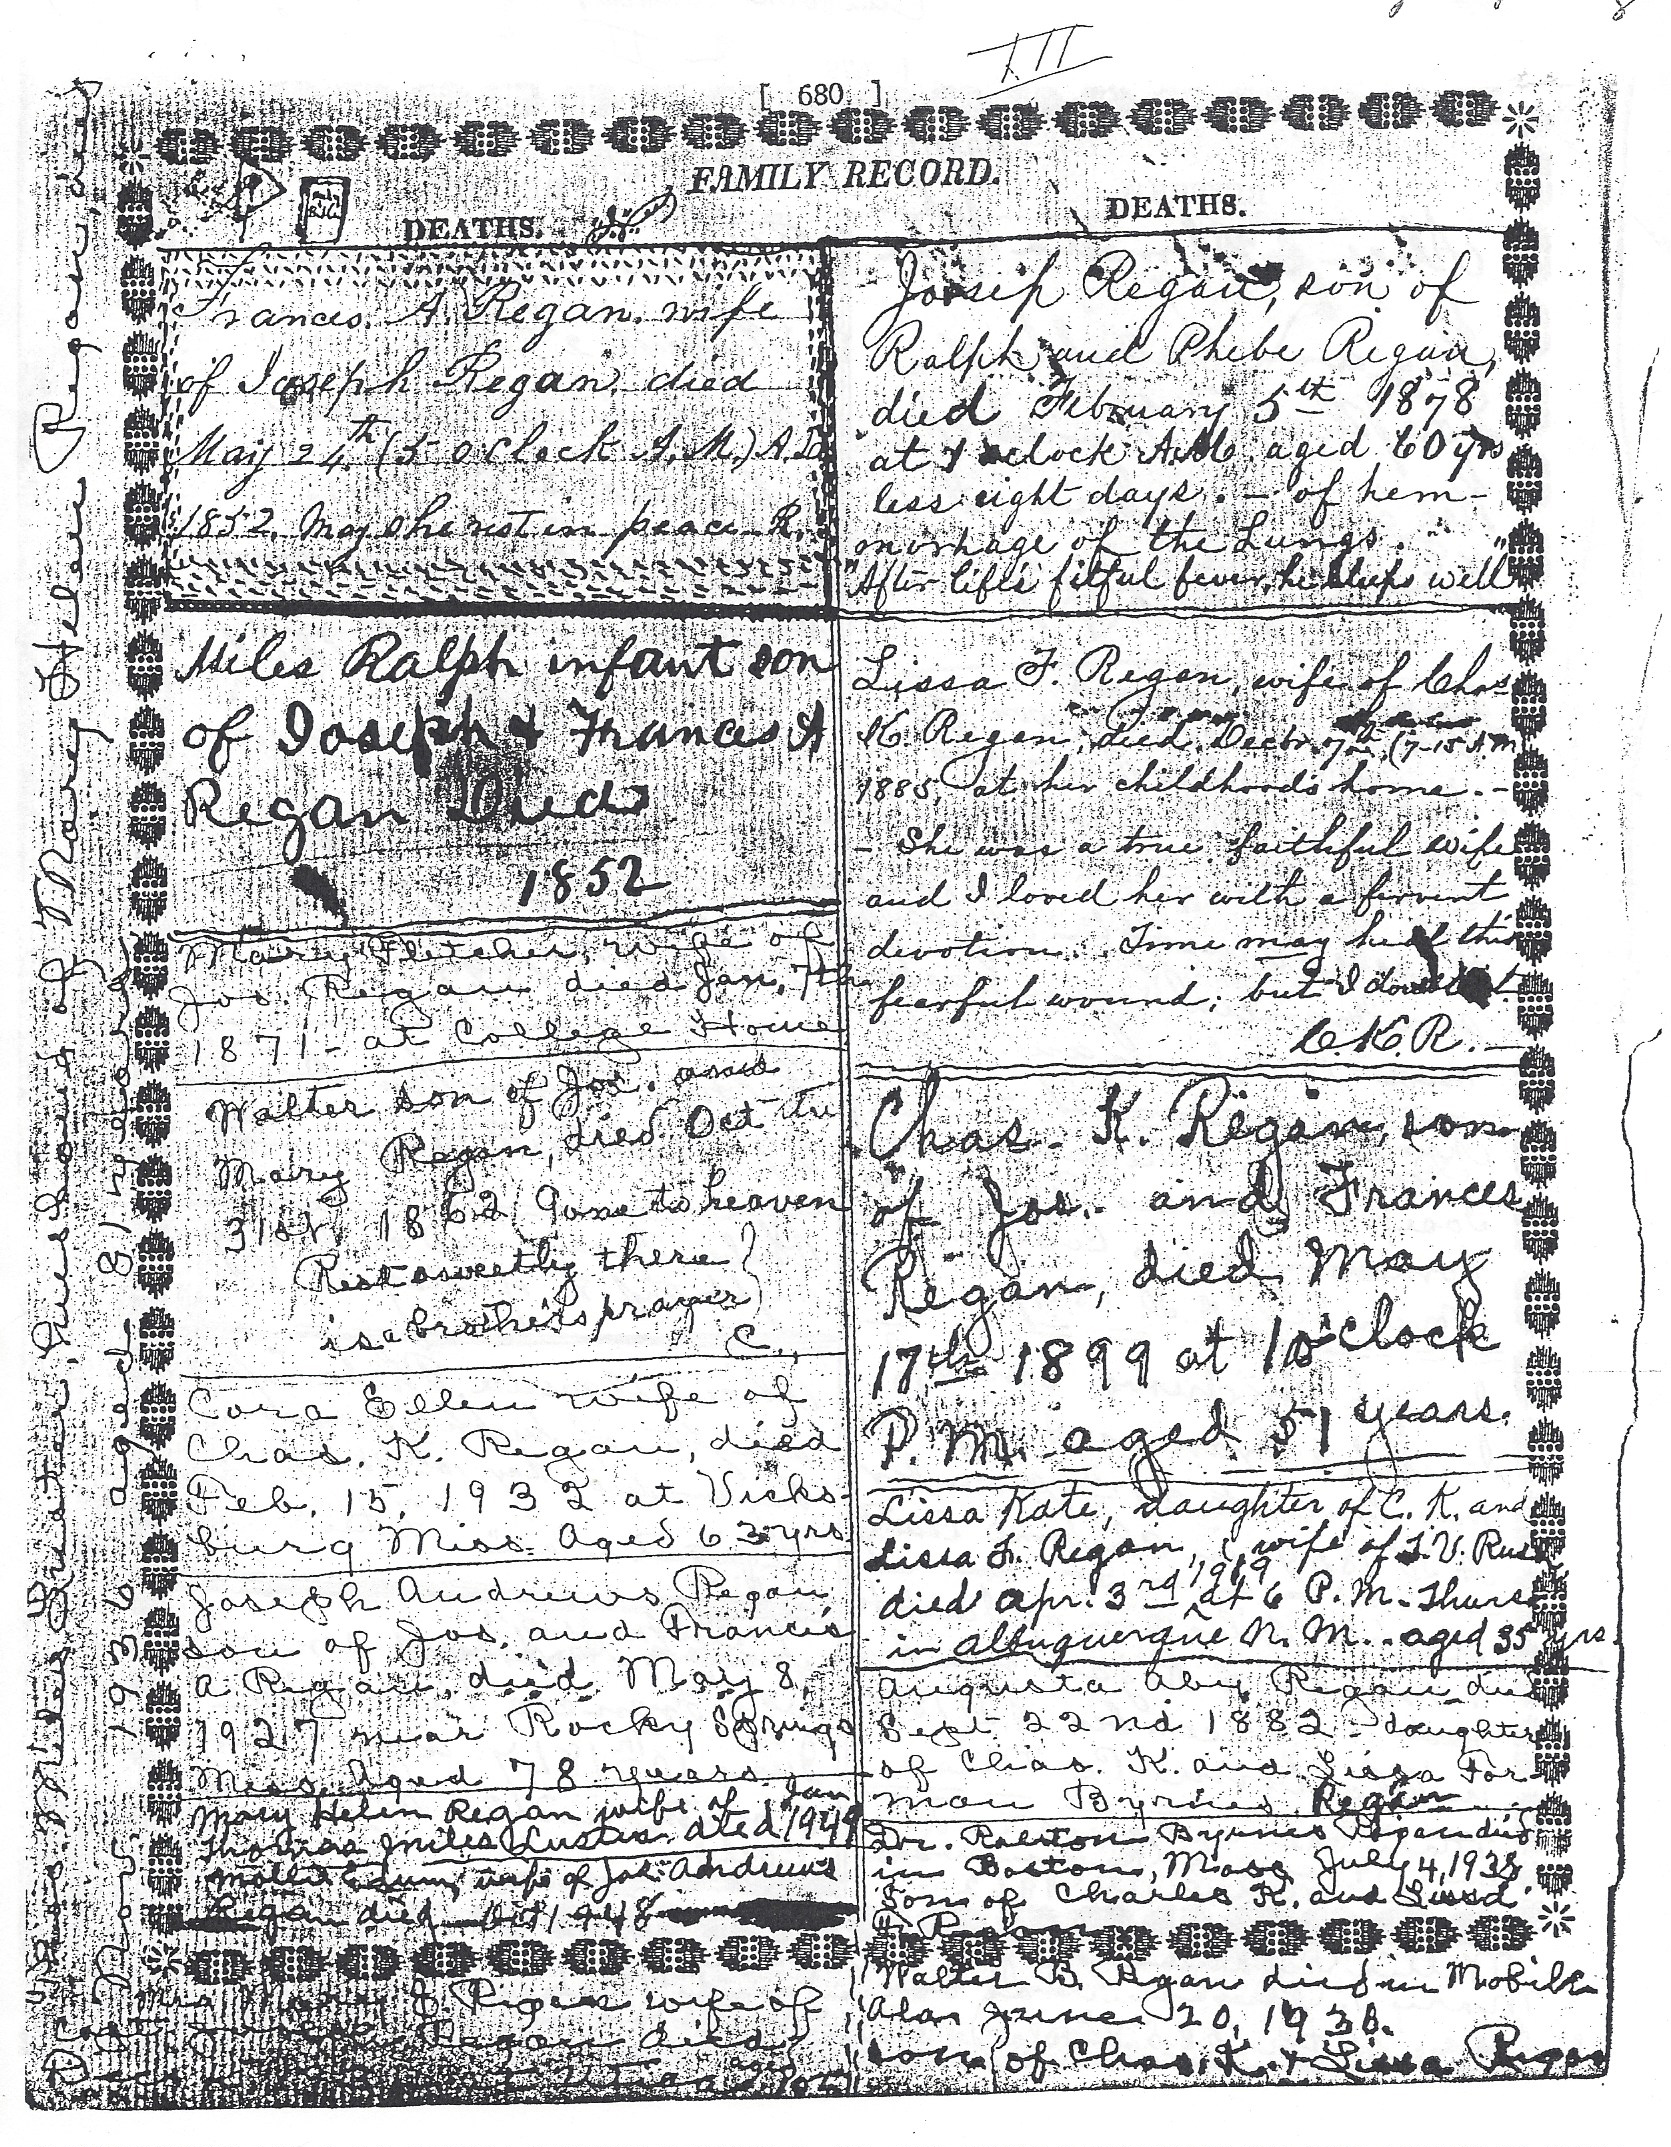 III
[ 680 ]
FAMILY RECORD.
DEATHS.
Frances. A. Regan. wife
of Joseph Regan. died
May 24th (5 oclock A.M.) A.D.
1852. May she rest in peace R.
Miles Ralph infant son
of Joseph & Frances A
Regan Died
1852
Mary Fletcher, wife of
Jos. Regan died Jan. 7th
1871 - at College Home
Walter son of Jos. and
Mary Regan, died Oct the
31st, 1862 (Gone to heaven
Rest sweetly there
is a brother's prayer)
C.
Cora Ellen wife of
Chas. K. Regan, died
Feb. 15, 1932 at Vicks-
burg Miss. Aged 63 yrs
Joseph Andrews Regan
son of Jos. and Francis
A Regan, died May 8,
1927 near Rocky Springs
Miss. Aged 78 years.
Mary Helen Regan wife of Jan
Thomas Miles Luster died 1949
wife of Jos Andrews
Regan died Oct 1948
Mrs. J. Regan wife of
Regan died
DEATHS.
Joseph Regan, son of
Ralph and Phebe Regan,
died February 5th 1878
at oclock A.M. aged 60 yrs
less eight days. - of hem-
morhage of the Lungs.
"After life's fitful fever, he sleeps well"
Lissa F. Regan, wife of Chas
K. Regan, died, Decbr. 7th, (7-15 A M
1885, at her childhoods home. -
- She was a true faithful wife
and I loved her with a fervent
devotion. Time may heal this
fearful wound; but I doubt it.
C.K.R. -
Chas. K. Regan, son
of Jos. and Frances
Regan, died May
17th 1899 at 10 o'clock
P.M. aged 51 years.
Lissa Kate, daughter of C. K. and
Lissa F. Regan, wife of T.V. Rus
died Apr. 3rd 1919 at 6 P.M. Thurs
in Albuquerque N. M. aged 35 yrs.
Augusta Aby Regan died
Sept 22nd 1882 - daughter
of Chas. K. and Lissa For
man Byrnes Regan
Dr. Ralston Byrnes Regan died
in Boston, Mass July 4, 1938
Son of Charles K. and Lissa
Walter B. Regan died in Mobile
Ala. June 20, 1938.
son of Chas. K. & Lissa Regan
husband of Mary Helen Regan,
1936 aged 81 yrs